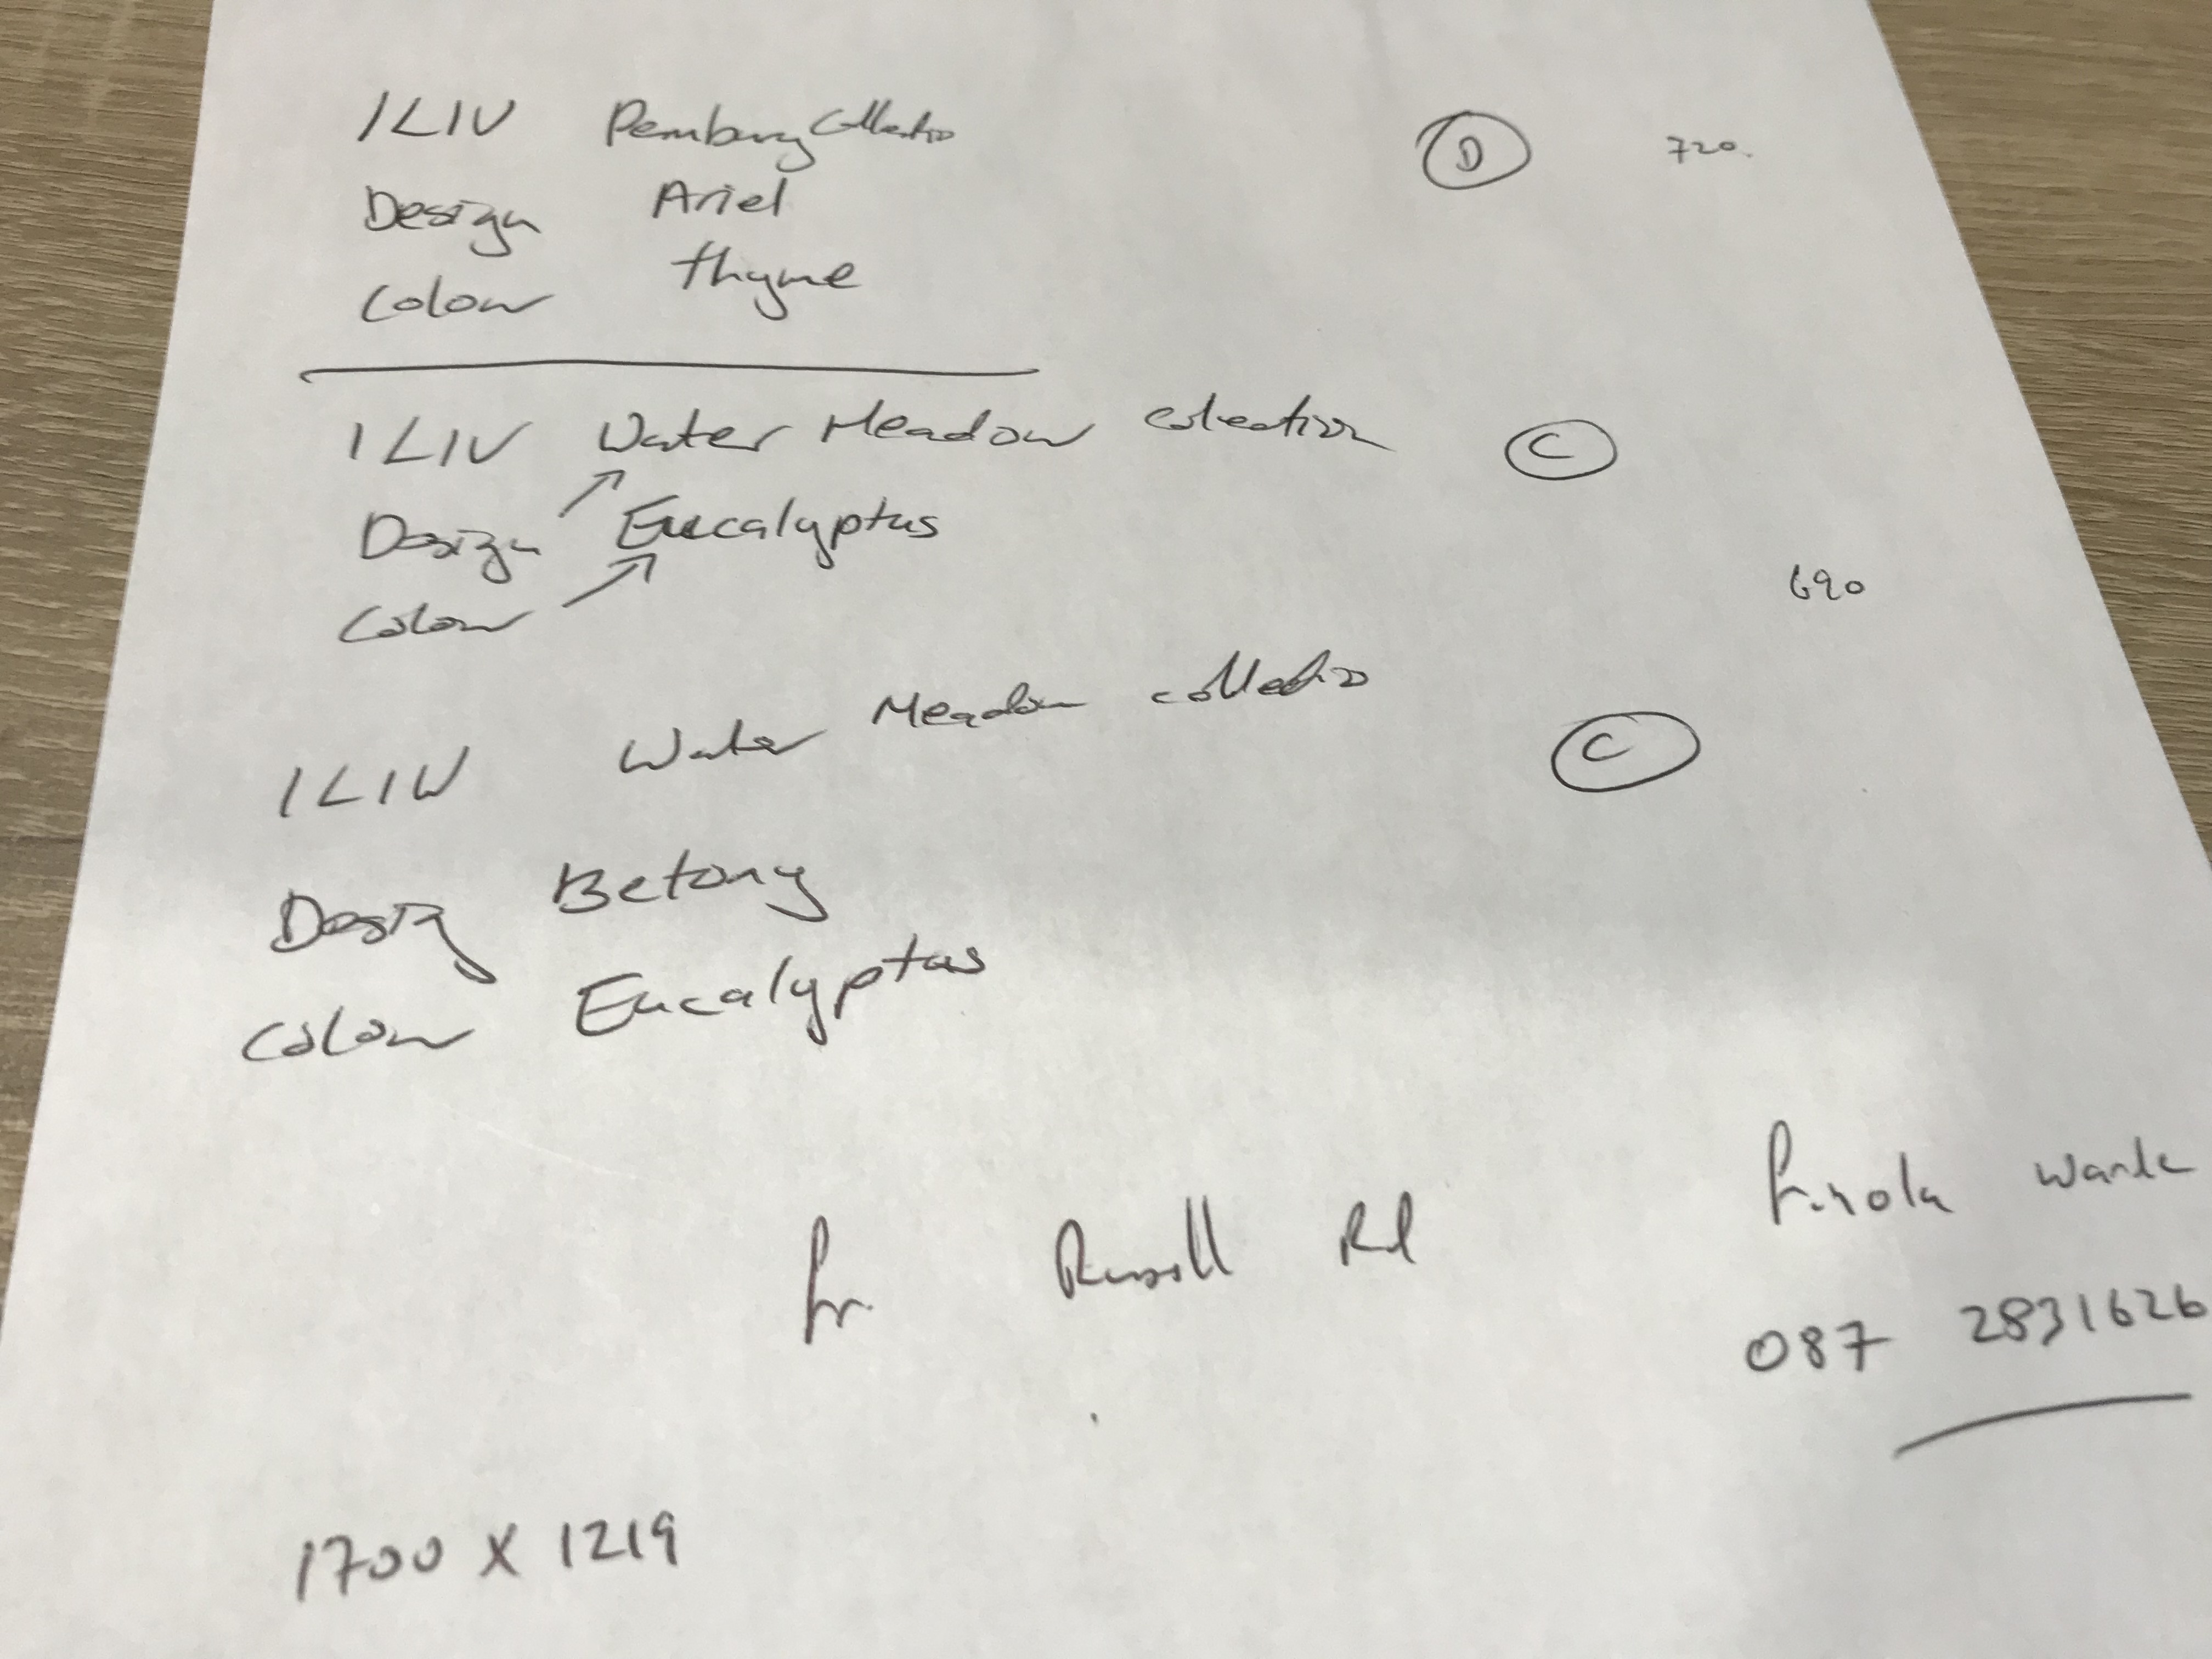 ILIV Pembury Collection D 720.
Design Ariel
Colour thyme
ILIV Water Meadow collection C
Design Eucalyptus
Colour
690
ILIV Water Meadow collection C
Design Betony
Colour Eucalyptus
Finola
for Russell Rd
087 2831626
1700 X 1219